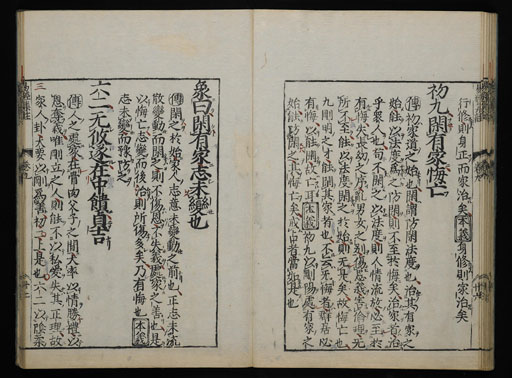 行修則身正而家治矣本義身修則家治矣
初九閑有家悔亡
傳初家道之始也閑謂防閑法度也治其有家之
始能以法度爲之防閑則不至於悔矣治家者治
乎衆人也苟不閑之以法度則人情流放必至於
有悔失長幼之序亂男女之別傷恩義害倫理无
所不至能以法度閑之於始則无是矣故悔亡也
九剛明之才能閑其家者也不云无悔者群居必
有悔以能閑故亡耳本義初九以剛陽處有家之
始能防閑之其悔亡矣戒占者當如是也
象曰閑有家志未變也
傳閑之於始家人志意未變動之前也正志未流
散變動而閑之則不傷恩不失義處家之善也是
以悔亡志變而後治則所傷多矣乃有悔也本義
志未變而豫防之
六二无攸遂在中饋貞吉
傳人之處家在骨肉父子之間大率以情勝禮以
恩奪義唯剛立之人則能不以私愛失其正理故
家人卦大要以剛爲善初三上是也六二以陰柔